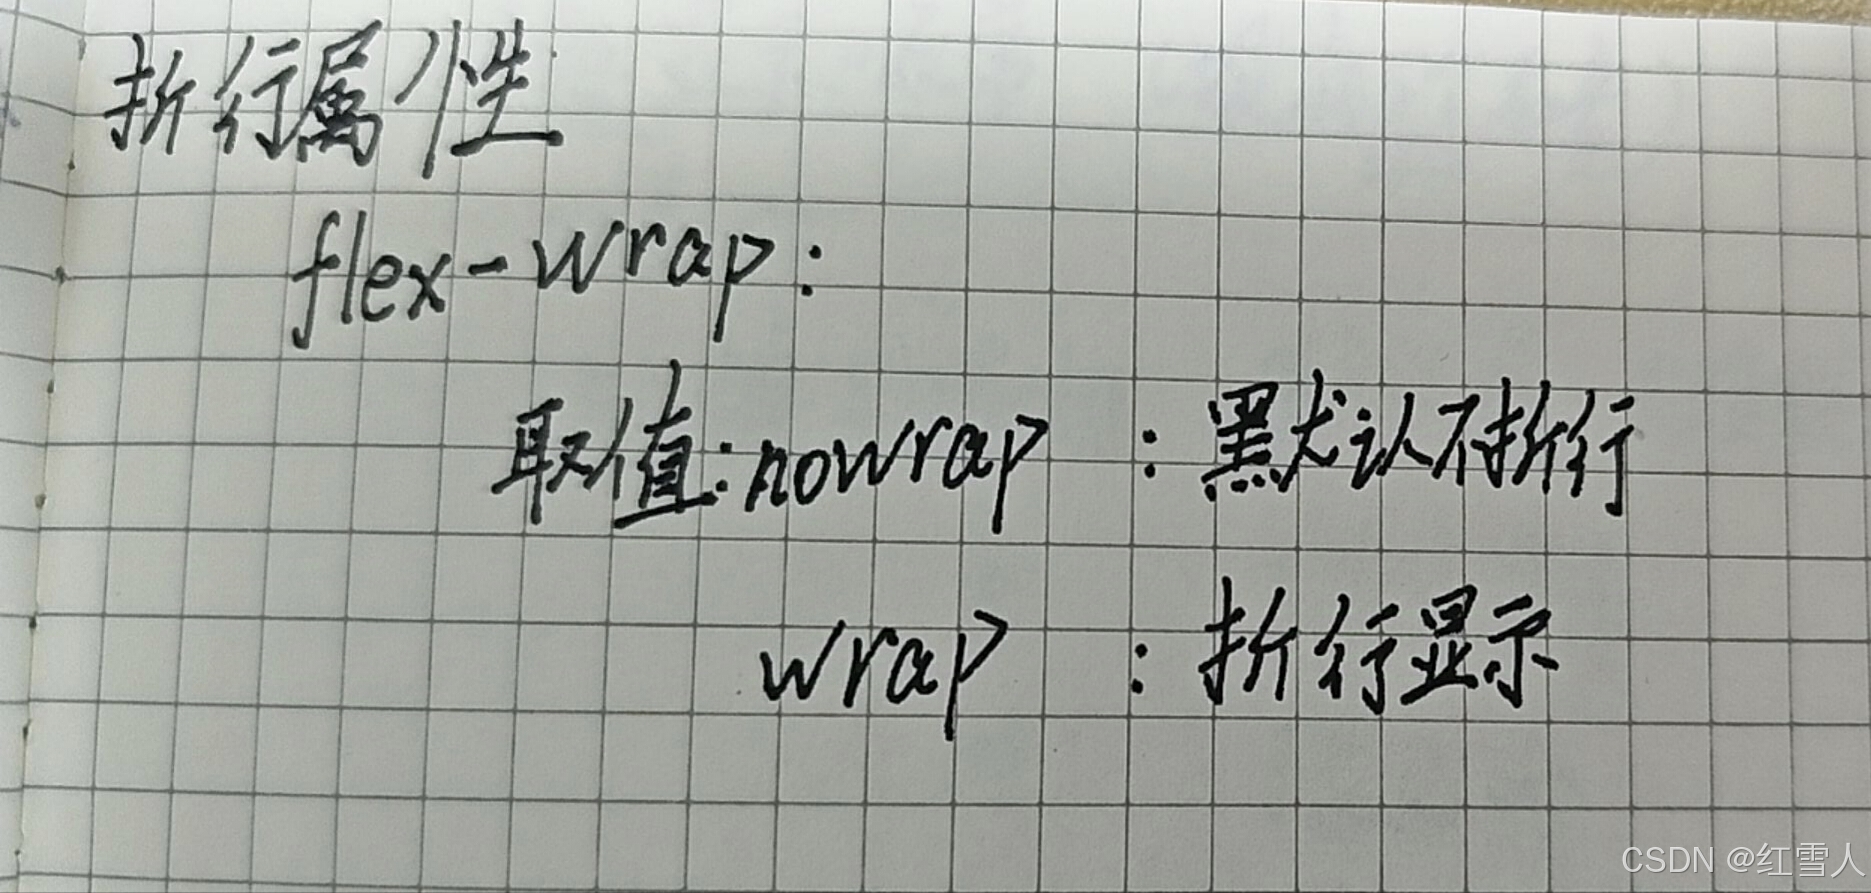 折行属性
flex-wrap:
取值:nowrap :默认不折行
wrap :折行显示
CSDN @红雪人